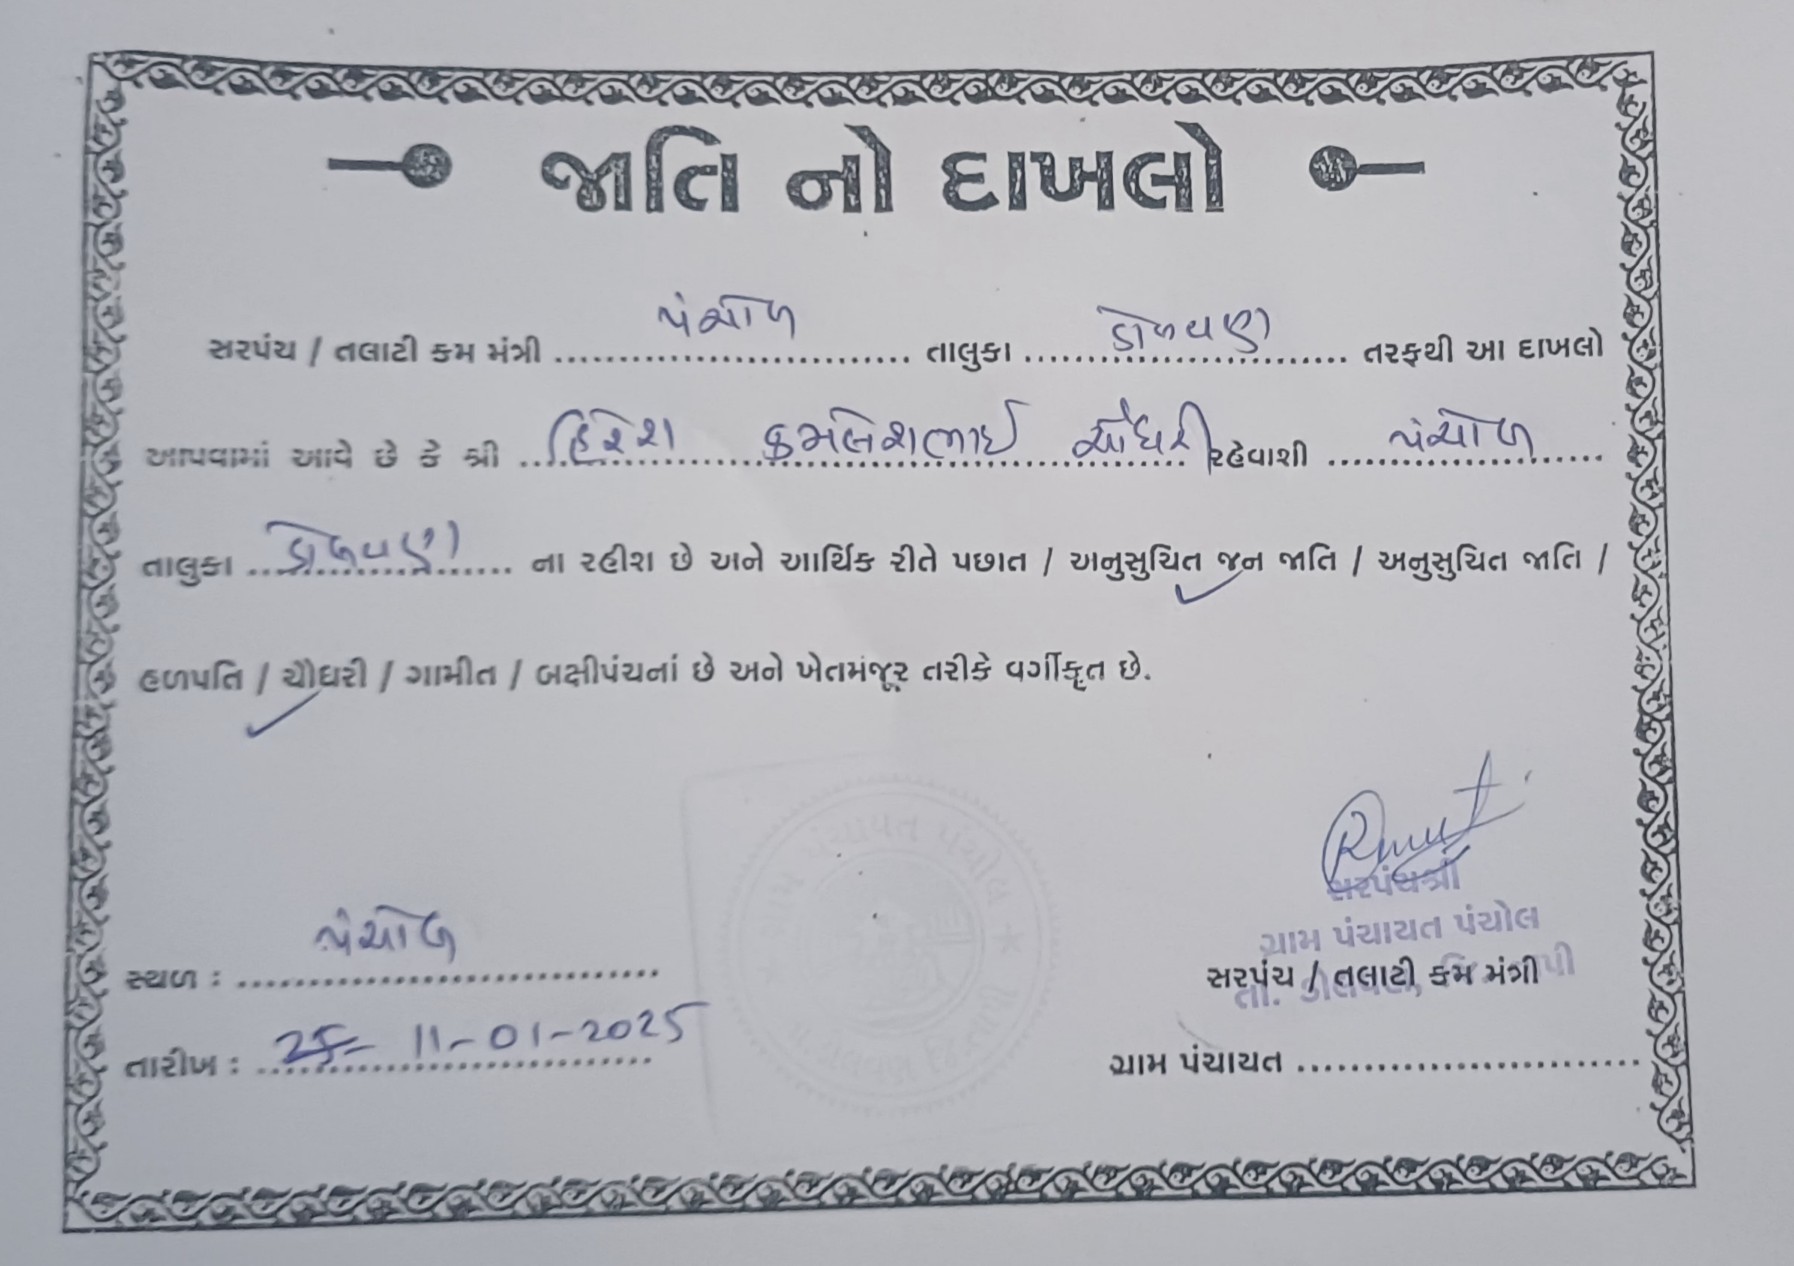 જાતિ નો દાખલો
સરપંચ / તલાટી કમ મંત્રી પંચોળ તાલુકા ડોળવણ તરફથી આ દાખલો
આપવામાં આવે છે કે શ્રી હિરેશ કમલેશભાઈ ચૌધરી રહેવાશી પંચોળ
તાલુકા ડોળવણ ના રહીશ છે અને આર્થિક રીતે પછાત / અનુસુચિત જન જાતિ / અનુસુચિત જાતિ /
હળપતિ / ચૌધરી / ગામીત / બક્ષીપંચનાં છે અને ખેતમંજૂર તરીકે વર્ગીકૃત છે.
ગ્રામ પંચાયત પંચોલ
સરપંચશ્રી
ગ્રામ પંચાયત પંચોલ
તા. ડોલવણ,
સ્થળ : પંચોળ
સરપંચ / તલાટી કમ મંત્રી
તારીખ : 11-01-2025
ગ્રામ પંચાયત